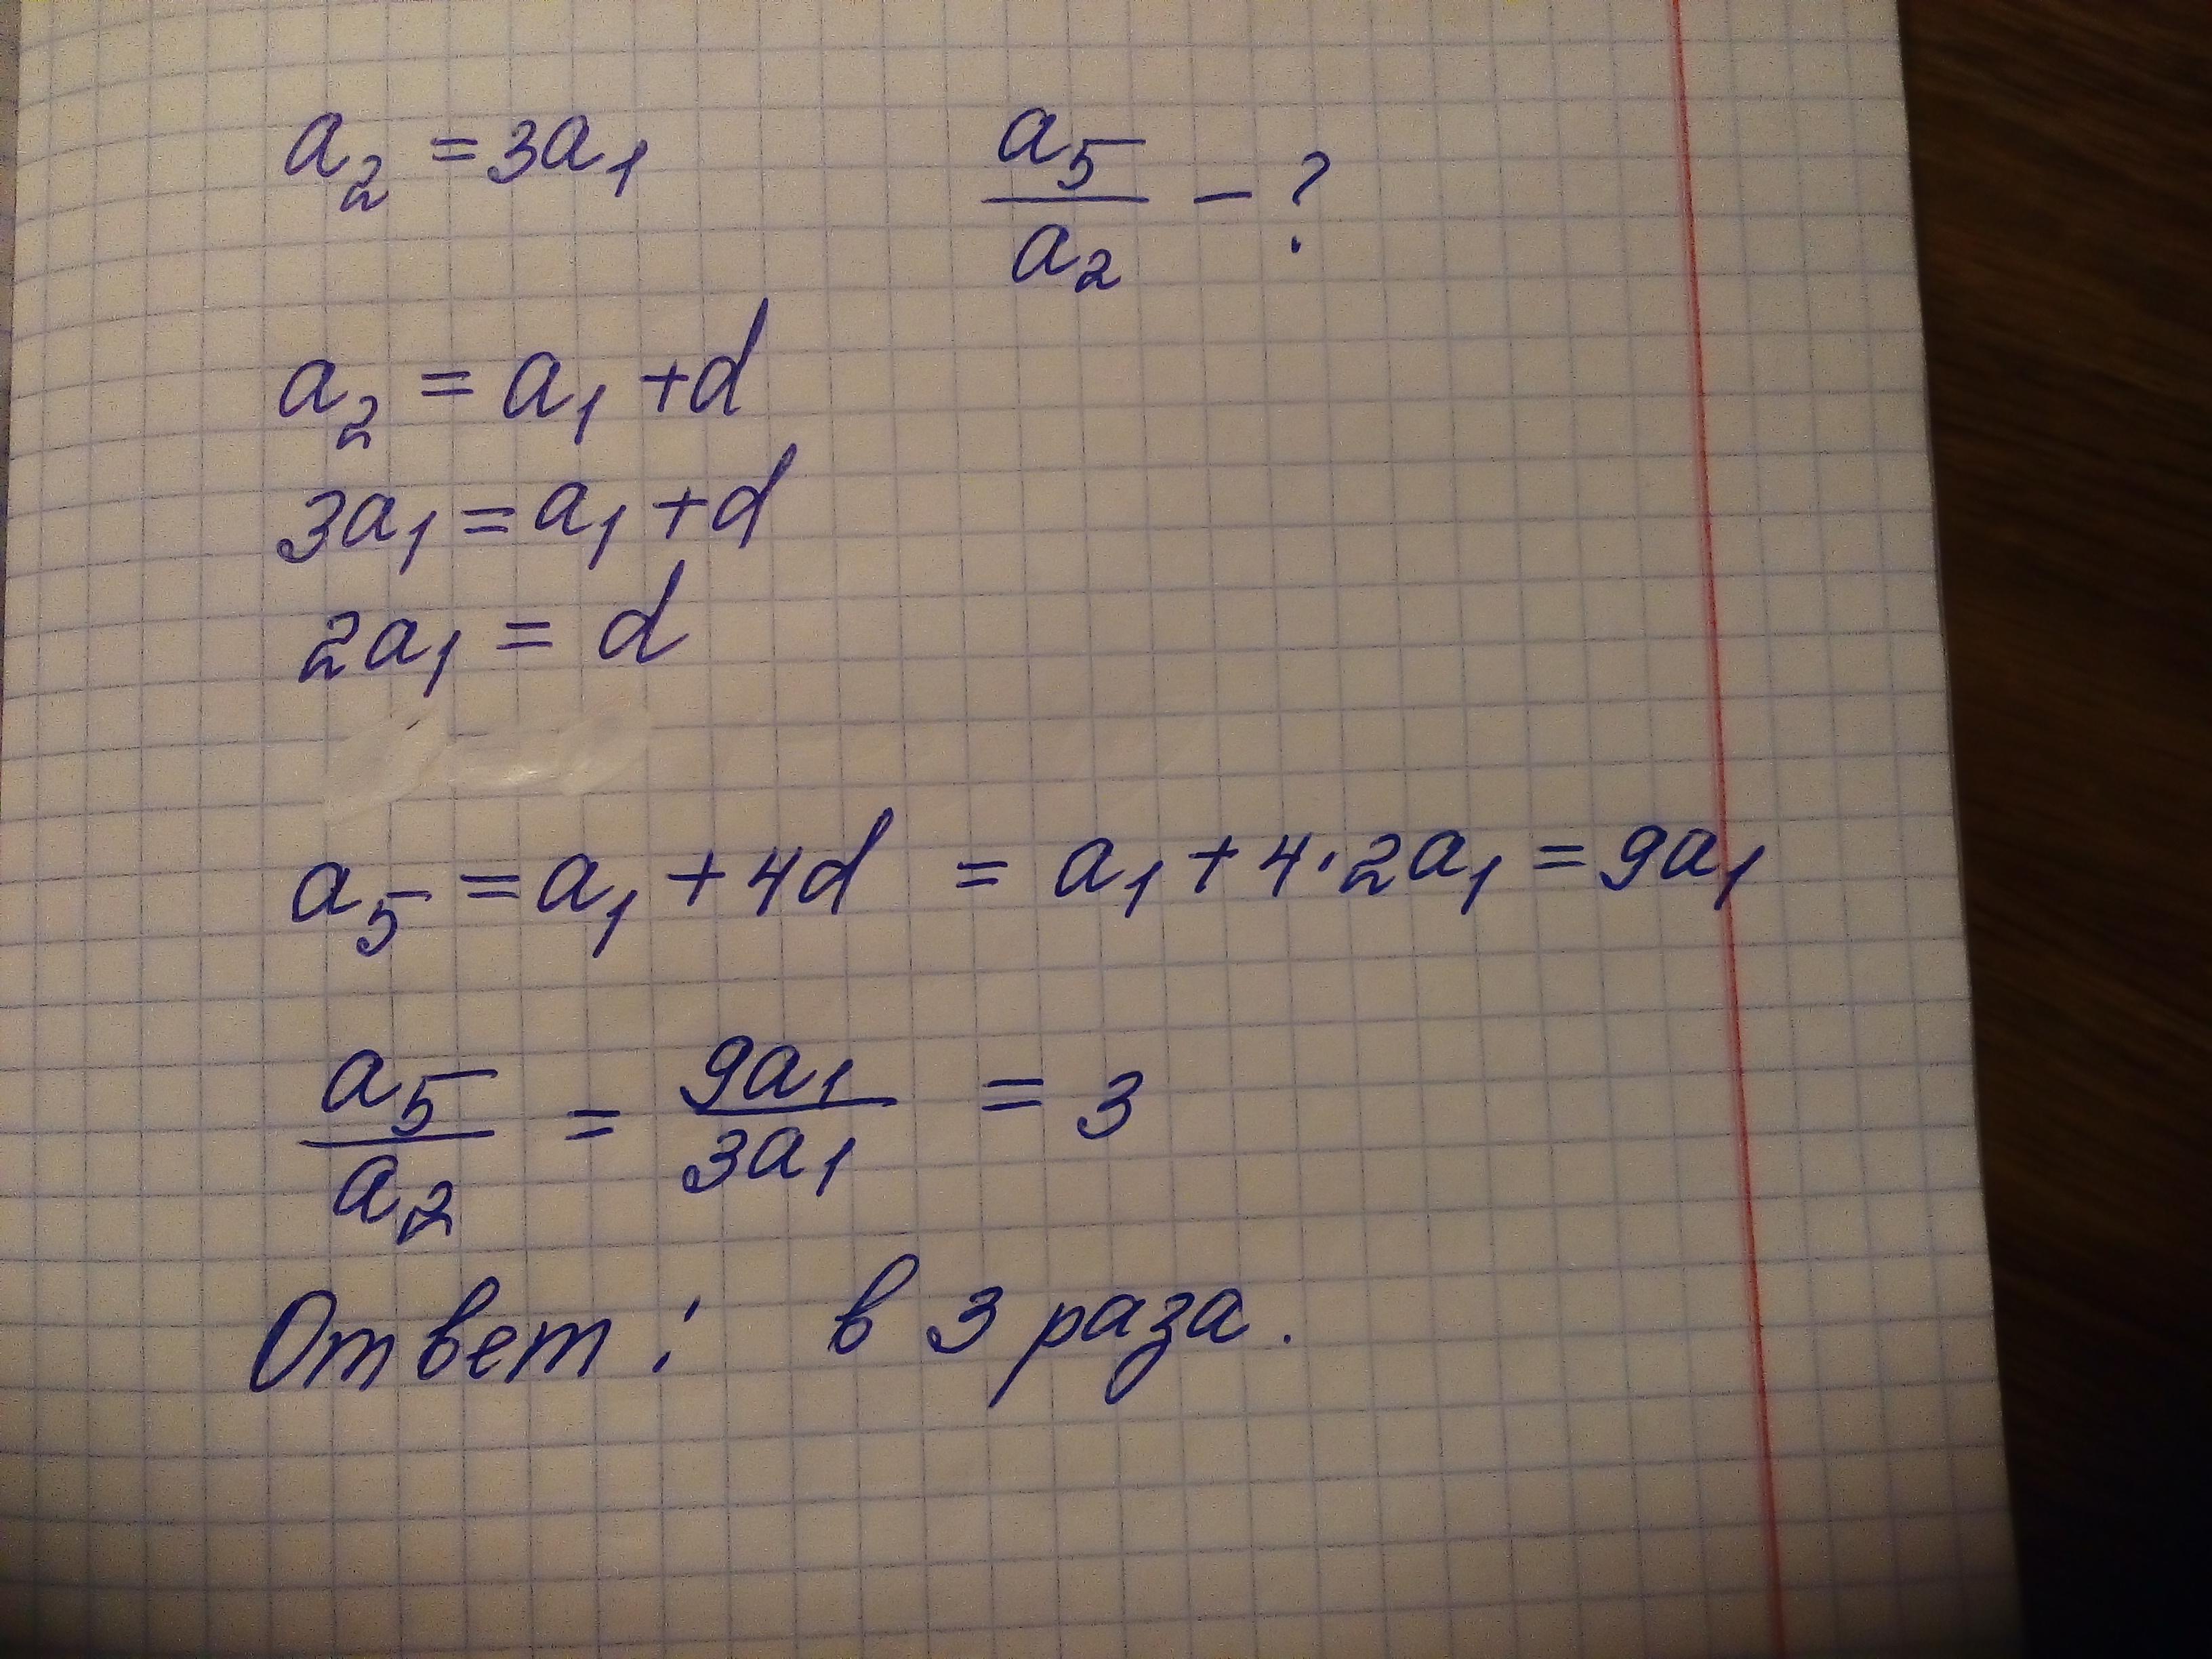 a₂ = 3a₁   a₅/a₂ – ?
a₂ = a₁ + d
3a₁ = a₁ + d
2a₁ = d
a₅ = a₁ + 4d = a₁ + 4·2a₁ = 9a₁
a₅/a₂ = 9a₁/3a₁ = 3
Ответ: в 3 раза.